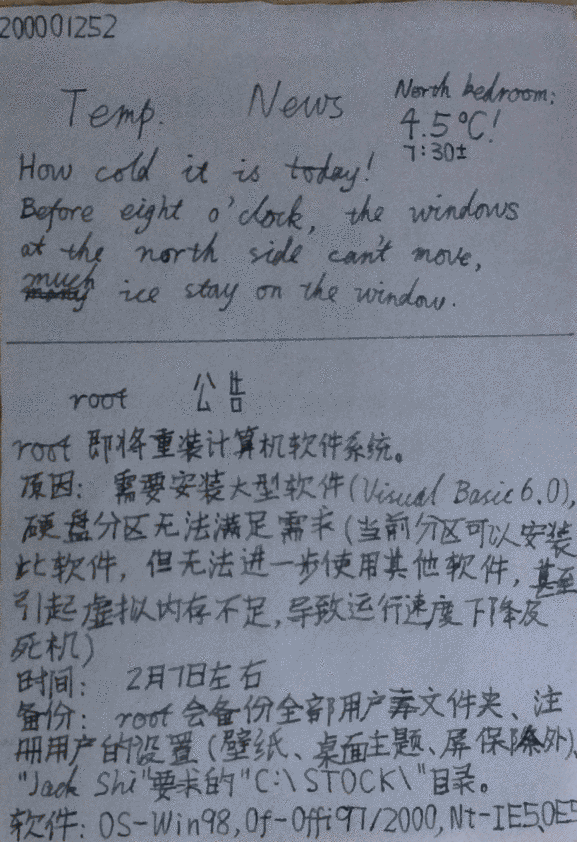 200001252
Temp. News North bedroom:
4.5°C!
7:30±
How cold it is today!
Before eight o'clock, the windows
at the north side can't move,
much ice stay on the window.
root 公告
root 即将重装计算机软件系统。
原因: 需要安装大型软件(Visual Basic 6.0),
硬盘分区无法满足需求(当前分区可以安装
此软件, 但无法进一步使用其他软件, 甚至
引起虚拟内存不足, 导致运行速度下降及
死机)
时间: 2月7日左右
备份: root会备份全部用户文件夹、注
册用户的设置(壁纸、桌面主题、屏保除外)、
"Jack Shi"要求的"C:\STOCK\"目录。
软件: OS-Win98, Of-Offi97/2000, Nt-IE5、OE5